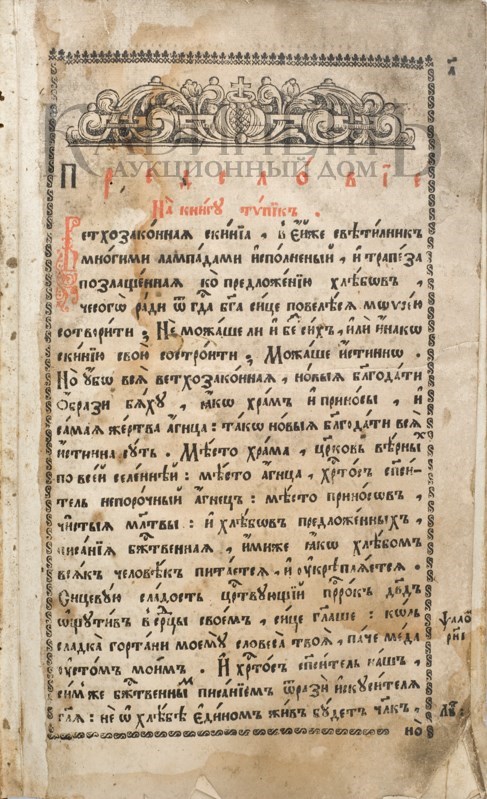 ҂а҃
КАБИНЕТЪ
АУКЦИОННЫЙ ДОМ
Предисловїе
На книгу тѵпікъ .
Ветхозаконная скинїа , в ней́же свѣтилникъ
многими лампадами исполненый , и трапеза
позлащенная ко предложенїю хлѣбѡвъ ,
чесогѡ ради ѿ гд҃а бг҃а сице повелѣся мѡѵсею
сотворити ; Не можаше ли и без сихъ , или инакѡ
скинїю свою состроити ; Можаше истиннѡ .
Но ᲂубѡ вся ветхозаконная , новыя благодати
ѡбрази бяху , ꙗкѡ храмъ и приносы , и
самая жертва агнца : такѡ новыя благодати вся
истинна суть . Мѣсто храма , церковь вѣрныхъ
по всей селеннѣй : мѣсто агнца , хрⷭ҇тосъ спⷭ҇и-
тель непорочный агнецъ : мѣсто приносѡвъ ,
чистыя мл҃твы : и хлѣбѡвъ предложенныхъ ,
писанїя бжⷭ҇твенная , имиже ꙗкѡ хлѣбомъ
всякъ человѣкъ питается , и ᲂукрѣпляется .
Сицевую сладость црⷭ҇твующїй прⷪ҇рокъ дв҃дъ
ѡщутивъ в срⷣцы своемъ , сице гл҃аше : коль
сладка гортани моему словеса твоя , паче меда
ᲂустомъ моимъ . И хрⷭ҇тосъ спⷭ҇итель нашъ ,
симже бжⷭ҇твеннымъ писанїемъ ѿрази искусителя
гл҃я : не ѡ хлѣбѣ единомъ живъ будетъ чл҃къ ,
Ѱалѡ
рн҃е
Лу :
но